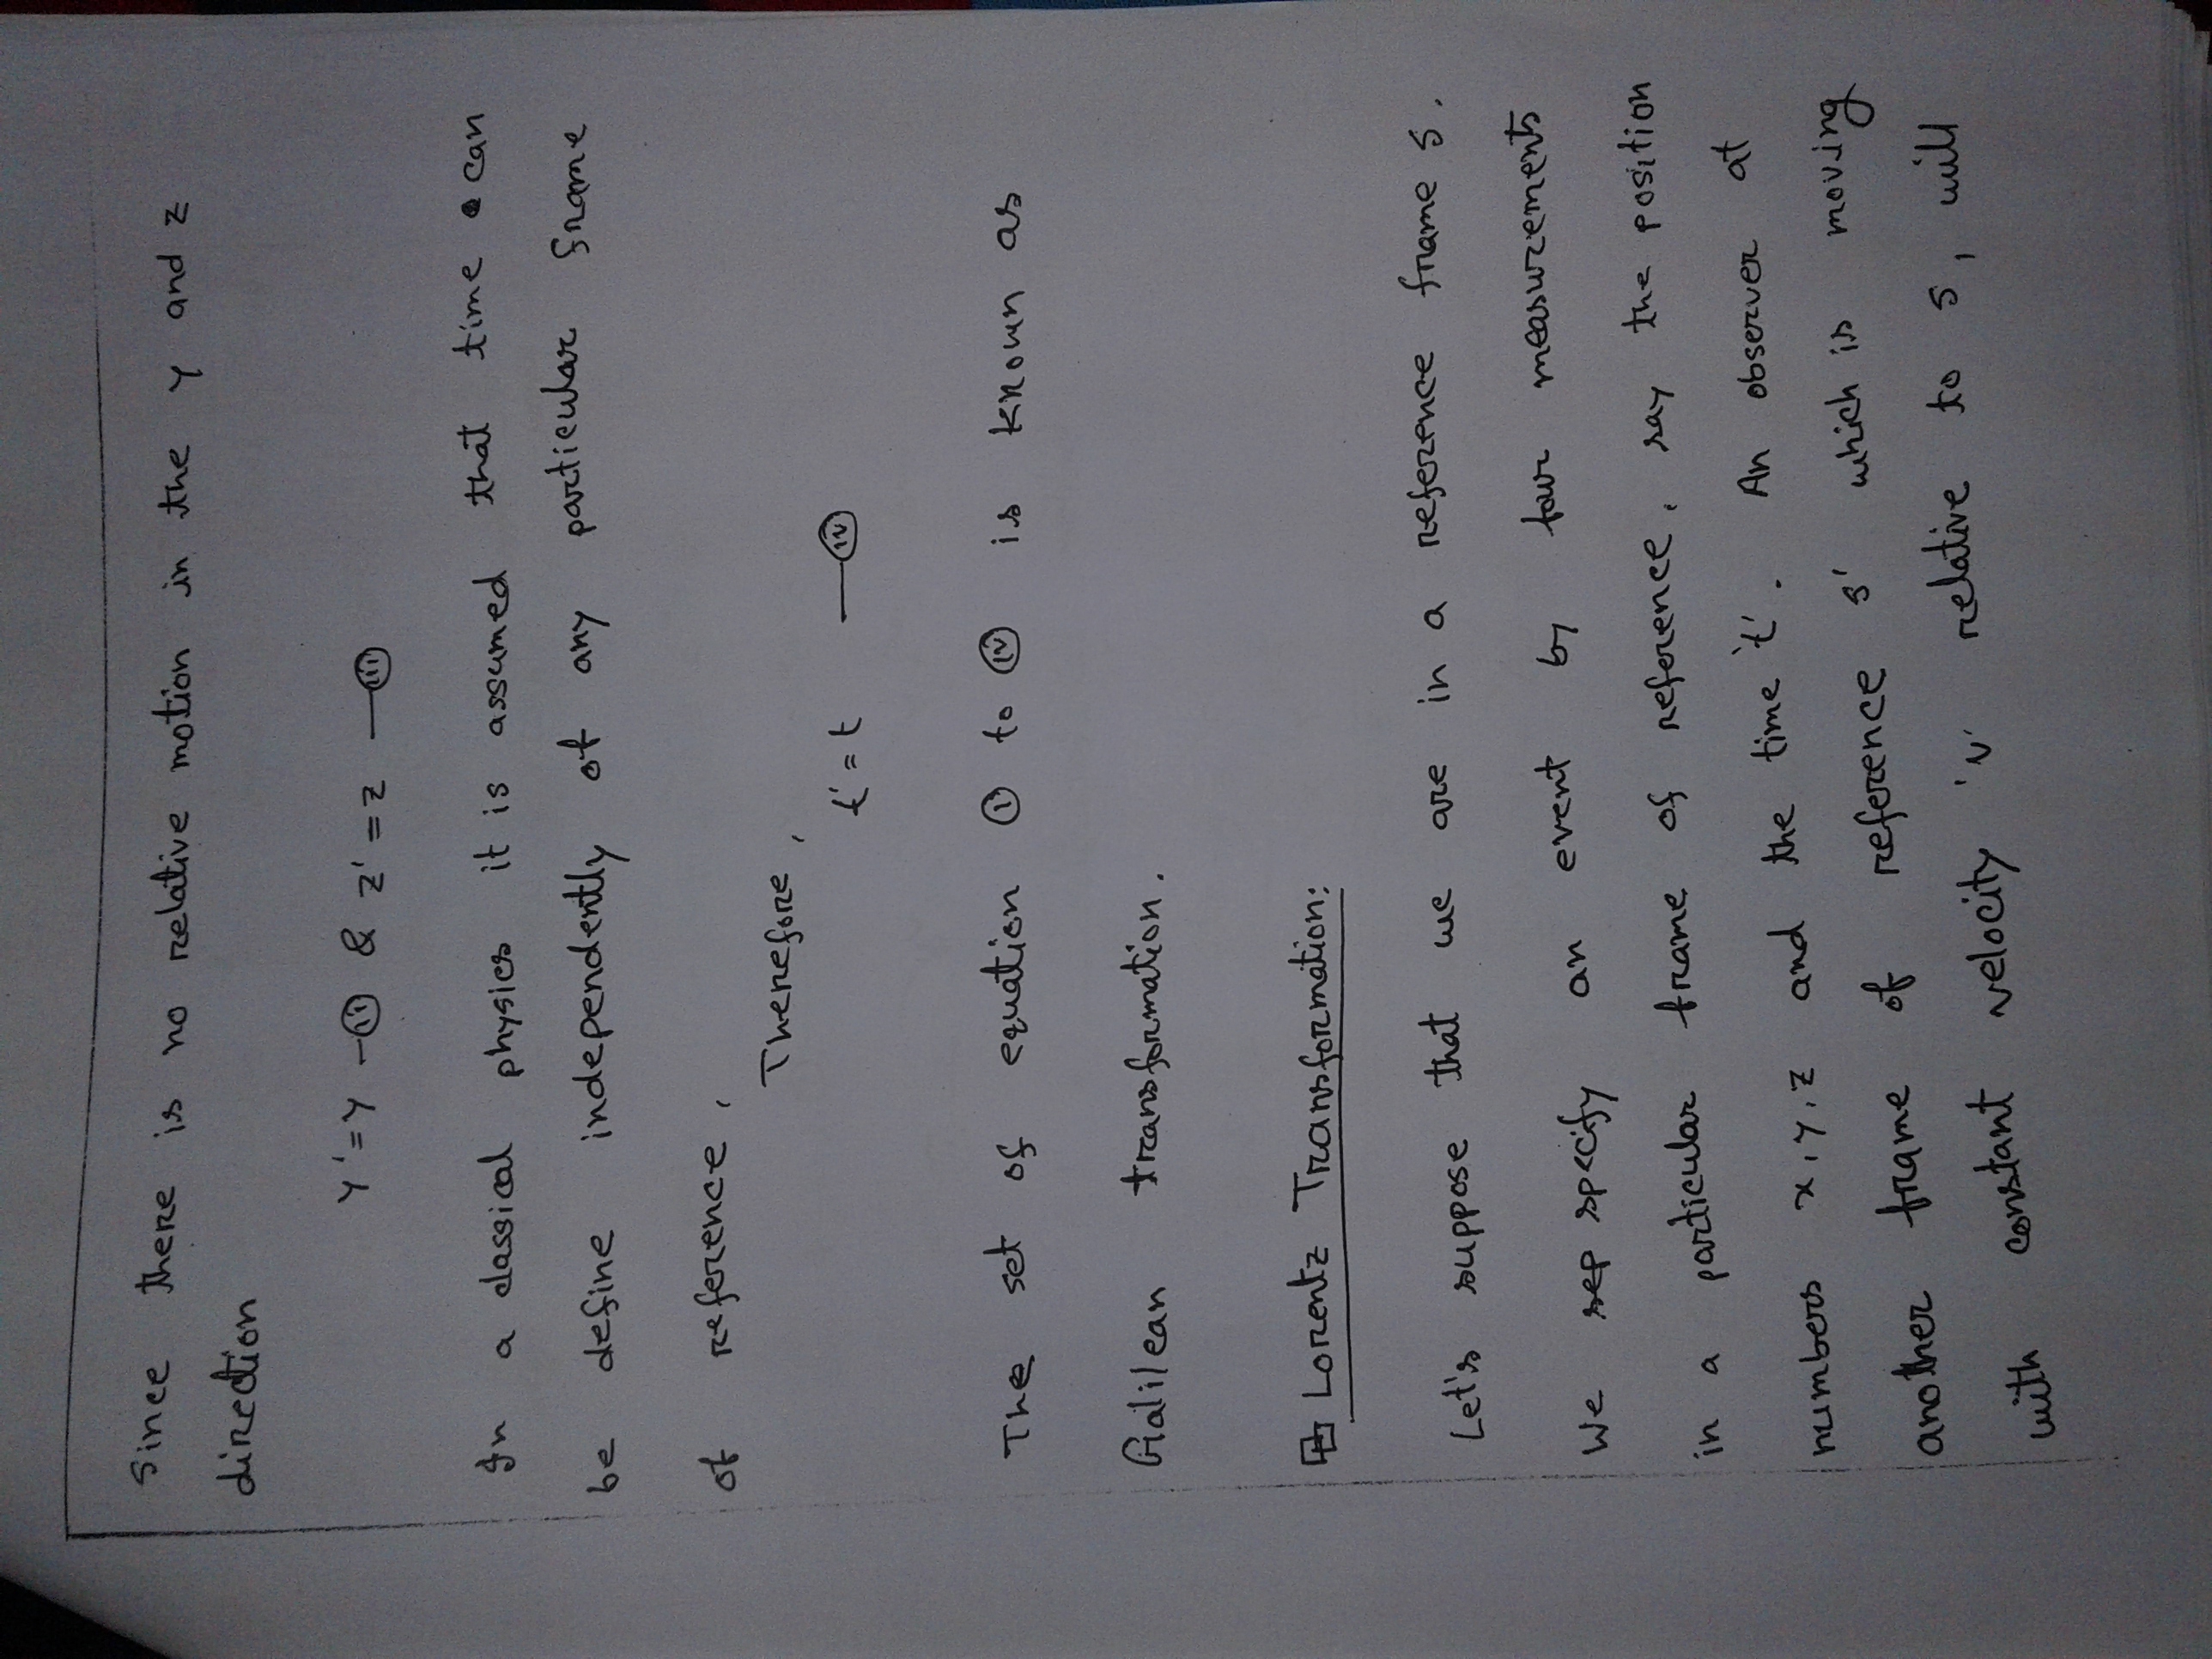 Since there is no relative motion in the y and z
direction
y' = y —(ii) & z' = z —(iii)
In a classical physics it is assumed that time can
be define independently of any particular frame
of reference,
Therefore,
t' = t —(iv)
The set of equation (i) to (iv) is known as
Galilean transformation.
Lorentz Transformation:
Let's suppose that we are in a reference frame s.
We sep specify an event by four measurements
in a particular frame of reference, say the position
numbers x, y, z and the time 't'. An observer at
another frame of reference s' which is moving
with constant velocity 'v' relative to s, will